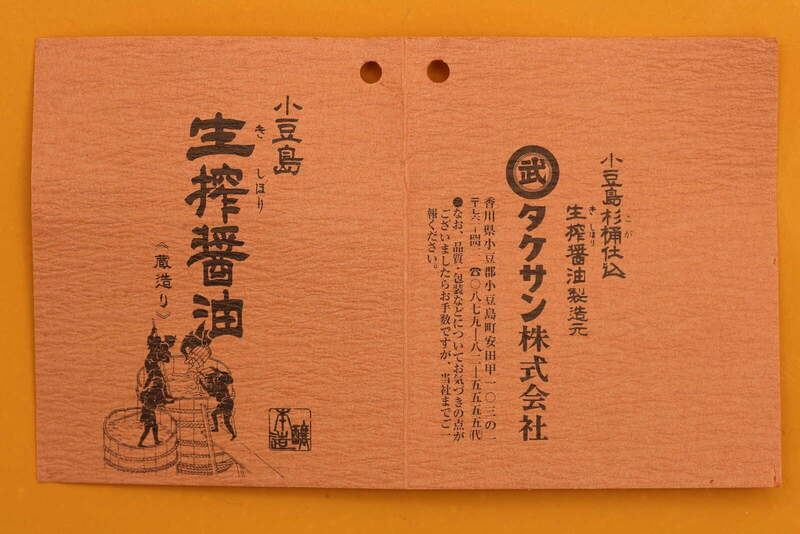 小豆島
生搾醤油
き しぼり
《蔵造り》
本醸造
小豆島杉桶仕込
こが
生搾醤油製造元
き しぼり
武
タケサン株式会社
香川県小豆郡小豆島町安田甲一〇三の一
☎〇八七九―八二―五五五五㈹
●なお、品質・包装などについてお気づきの点が
ございましたらお手数ですが、当社までご一
報ください。